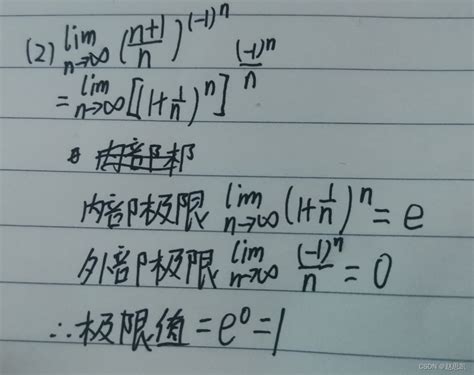 (2) lim n→∞ (n+1/n)^(-1)^n
= lim n→∞ [(1+1/n)^n]^((-1)^n/n)
内部极限 lim n→∞ (1+1/n)^n = e
外部极限 lim n→∞ (-1)^n/n = 0
∴极限值 = e^0 = 1
CSDN @赵思凯